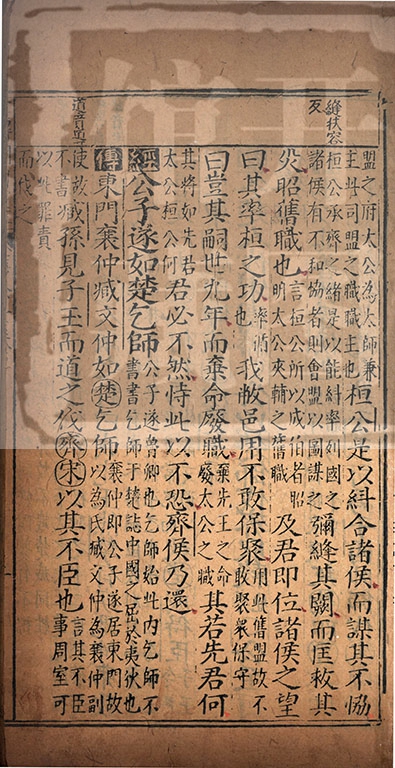 縫扶容
反
盟之府太公為太師兼
主此司盟之職職主也
桓公是以糾合諸侯而謀其不恊
桓公承齊之緒是以能糾率列國之
諸侯有不和協者則會盟以圖謀之
彌縫其闕而匡救其
災昭舊職也
言桓公所以成伯者昭
明太公夾輔之舊職
及君即位諸侯之望
曰其率桓之功
率循
也
我敝邑用不敢保聚
用此舊盟故不
敢聚衆保守
曰豈其嗣世九年而棄命廢職
棄先王之命
廢太公之職
其若先君何
其將如先君
太公桓公何
君必不然恃此以不恐齊侯乃還
經公子遂如楚乞師
公子遂魯卿也乞師始此内乞師不
書書乞師于楚誌中國之屈於夷狄也
傳東門襄仲臧文仲如楚乞師
襄仲即公子遂居東門故
以為氏臧文仲為襄仲副
道音導
使故
不書
臧孫見子玉而道之伐齊宋以其不臣也
言其不臣
事周室可
以此罪責
而伐之